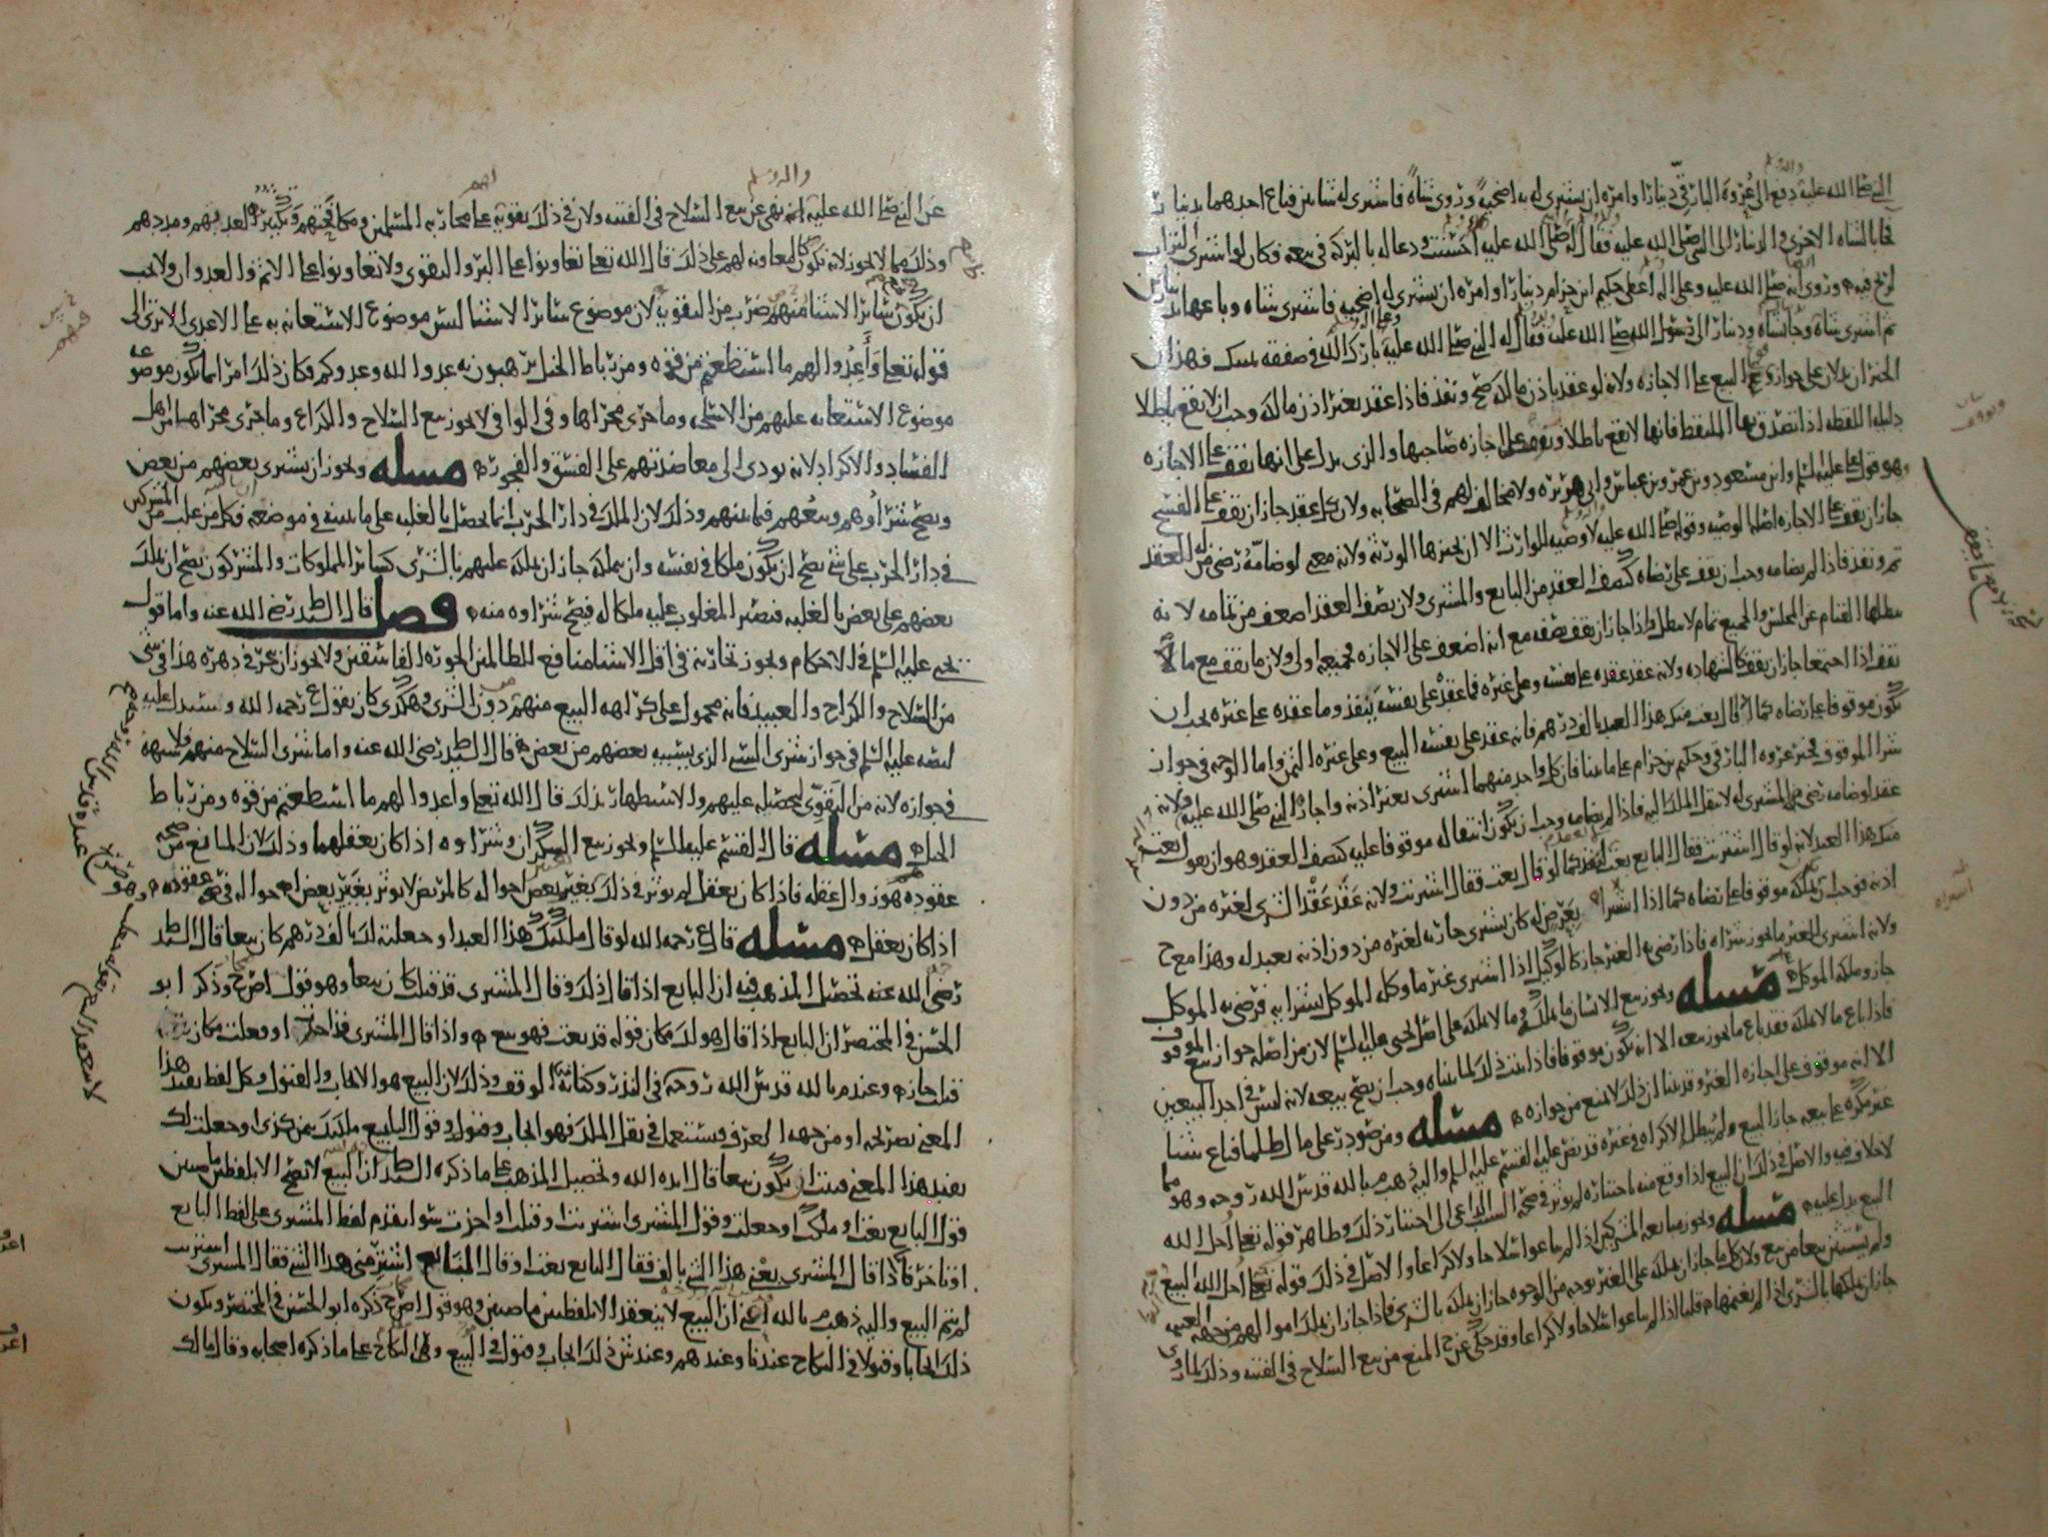 النبي صلى الله عليه دفع الى عروة البارقي دينارا وامره ان يشتري له به اضحية وروي شاة فاشترى له شاتين فباع احدهما بدينار
فجا بالشاه الاخرى والدينار الى النبي صلى الله عليه فقال له صلى الله عليه احسنت ودعا له بالبركه في بيعه فكان لو اشترى التراب
لربح فيه وروي انه صلى الله عليه وعلى اله اعطى حكيم ابن حزام دينارا وامره ان يشتري له اضحيه فاشترى شاه وباعها بدينارين
ثم اشترى شاة وجا بشاة ودينار الى رسول الله صلى الله عليه فقال له النبي صلى الله عليه بارك الله في صفقه يمينك فهذان
الخبران يدلان على جواز وقوع البيع على الاجازه ولانه لو عقد باذن مالكه صح ونفذ فاذا عقد بغير اذن مالكه وجب ان لا يقع باطلا
دليله اللقطه اذا تصدق بها الملتقط فانها لا تقع باطلا وتقف على اجازه صاحبها والذي يدل على انها تقف على الاجازه
وهو قول علي عليه السلم وابن مسعود وبن عمر وبن عباس وابي هريره ولا مخالف لهم في الصحابه ولان كل عقد جاز ان يقف على الفسخ
جاز ان يقف على الاجازه اصله الوصيه وقوله صلى الله عليه لا وصيه للوارث الا ان يجيزها الورثه ولانه معنى لو ضامه رضى من له العقد
تم ونفذ فاذا لم يضامه وجب ان يقف على رضاه كنصف العقد من البايع والمشتري ولان نصف العقد اضعف من تمامه لانه
يبطلها القيام عن المجلس والجميع تمام لا يبطل واذا جاز ان يقف نصفه مع انه اضعف على الاجازه فجميعه اولى ولان ما يقف مع مالك
يقف اذا اجتمعا جاز ان يقف كالشهاده ولانه عقد عقده على نفسه وعلى غيره فما عقده على نفسه ينفذ وما عقده على غيره يجب ان
يكون موقوفا على رضاه كما لو قال بعت منك هذا العبد بالف درهم فانه عقد على نفسه البيع وعلى غيره الثمن واما الوجه في جواز
شرا الموقوف فخبر عروه البارقي وحكيم بن حزام على ما بينا فان كل واحد منهما اشترى بغير اذنه واجازه النبي صلى الله عليه ولانه
عقد لو ضامه رضى من المشترى له لانتقل الملك اليه فاذا لم يضامه وجب ان يكون انتقاله موقوفا عليه كنصف العقد وهو ان يقول بعت
منك هذا العبد لانه لو قال اشتريت فقال البايع بعت انعقد كما لو قال بعت فقال اشتريت ولانه عقد عقد الشرى لغيره من دون
اذنه فوجب ان يملكه موقوفا على رضاه كما اذا اشترا
ولانه اشترى لغيره ما يجوز شراه فاذا رضي به الغير جاز كالوكيل اذا اشترى غير ما وكله الموكل بشرايه فرضي به الموكل
جاز وملكه الموكل مسله ويجوز بيع الانسان ما يملكه وما لا يملكه على اصل يحيى عليه السلم لان من اصله جواز بيع الموقوف
فاذا باع ما لا يملكه فقد باع ما يجوز بيعه الا انه يكون موقوفا فاذا ثبت ذلك لما بيناه وجب ان يصح بيعه لانه ليس في احد البيعين
الا انه موقوف على اجازه الغير وقد بينا ان ذلك لا يمنع من جوازه مسله ومن صودر على مال ظلما فباع شيئا
غير مكره على بيعه جاز البيع ولم يبطل الاكراه في غيره قد نص عليه القسم عليه السلم واليه ذهب م بالله قدس الله روحه وهو مما
لا خلاف فيه والاصل في ذلك ان البيع اذا وقع منه باختياره لم يوثر في صحه السبب الداعي الى اختياره ذلك وظاهر قوله تعالى احل الله
البيع يدل عليه مسله ويجوز مبايعه المشركين اذا لم يباعوا سلاحا ولا كراعا والاصل في ذلك قوله تعالى احل الله البيع
ولم يستثن بيعا من بيع ولان كل ما جاز ان يملكه على الغير بوجه من الوجوه جاز ان يملكه بالشرى فاذا جاز ان يملك اموالهم من جهه الغنيمه
جاز ان يملكها بالشرى اذا لم يغنمها م قلنا اذا لم يباعوا سلاحا ولا كراعا وقد حكي عن ح المنع من بيع السلاح في الفتنه وذلك لما روي
عن النبي صلى الله عليه انه نهى عن بيع السلاح في الفتنه ولان في ذلك تقويه على محاربه المسلمين ومكافحتهم وتكثيرا لعددهم ومددهم
وذلك مما لا يجوز لانه يكون كالمعاونه لهم على ذلك قال الله تعالى تعاونوا على البر والتقوى ولا تعاونوا على الاثم والعدوان ولا يجب
ان يكون سائر الاشيا منهم ضرب من التقويه لان موضوع سائر الاشيا ليس موضوع الاستعانه به على الاعدى الا ترى الى
قوله تعالى وأعدوا لهم ما استطعتم من قوه ومن رباط الخيل ترهبون به عدو الله وعدوكم فكان ذلك امرا بما يكون موضوعه
موضوع الاستعانه عليهم من الاسلحه وما جرى مجراها وفي الوافي لا يجوز بيع السلاح والكراع وما جرى مجراها من اهل
الفساد والاكراد لانه يودي الى معاضدتهم على الفسق والفجور مسله ويجوز ان يشتري بعضهم من بعض
ويصح شراوهم وبيعهم فيما بينهم وذلك لان الملك في دار الحرب انما يحصل بالغلبه على ما نبينه في موضعه فكل من غلب من المشركين
في دار الحرب على شي يصح ان يكون ملكا في نفسه وان يملكه جاز ان يملكه عليهم بالشرى كسائر المملوكات والمشركون يصح ان يملك
بعضهم على بعض بالغلبه فيصير المغلوب عليه ملكا له فيصح شراوه منه فصل قال السيد رضي الله عنه واما قول
يحيى عليه السلم في الاحكام ويجوز تجارته في اقل الاشيا منافع للظالمين الجوره الفاسقين ولا يجوز ان يجر في دهره هذا في شي
من السلاح والكراع والعبيد فانه محمول على كراهه البيع منهم دون الشرى وهكذى كان يقول ع رحمه الله ويستدل عليه
لنصه عليه السلم في جواز شرى الشي الذي يسبيه بعضهم من بعض قال السيد رضي الله عنه واما شرى السلاح منهم فلا شبهه
في جوازه لانه من التقوي بتحصيله عليهم والاستظهار بذلك قال الله تعالى واعدوا لهم ما استطعتم من قوه ومن رباط
الخيل مسئله قال القسم عليه السلم ويجوز بيع السكران وشراوه اذا كان يعقلهما وذلك لان المانع من صحه
عقوده هو زوال عقله فاذا كان يعقل لم يوثر في ذلك تغير بعض احواله كالمريض لا يوثر تغير بعض احواله في صحه عقوده
اذا كان يعقل مسئله قال ع رحمه الله لو قال ملكتك هذا العبد او جعلته لك بالف درهم كان بيعا قال السيد
رضي الله عنه تحصيل المذهب فيه ان البايع اذا قال ذلك وقال المشتري قد قبلت كان بيعا وهو قول اص ح وذكر ابو
الحسن في المختصر ان البايع اذا قال هو لك مكان قوله قد بعت فهو بيع واذا قال المشتري قد اخذت او فعلت مكان
قبلت جاز وعند م بالله قدس الله روحه في النذر وكنايه الوقف وذلك لان البيع هو الايجاب والقبول وكل لفظ يفيد هذا
المعنى بصريحه او من جهه العرف ويستعمل في نقل الملك فهو ايجاب وقبول وقول البايع ملكتك بثمن كذى او جعلت لك
يفيد هذا المعنى فيثبت ان يكون بيعا قال ايده الله وتحصيل المذهب على ما ذكره السيد ان البيع لا يصح الا بلفظين ماضيين
قول البايع بعت او ملكت او جعلت وقول المشتري اشتريت او قبلت او اجزت سوا تقدم لفظ المشتري على لفظ البايع
او تاخر فاذا قال المشتري بعني هذا الشي بالف فقال البايع بعت او قال البايع اشتر مني هذا الشي فقال المشتري اشتريت
لم يتم البيع واليه ذهب م بالله اعني ان البيع لا ينعقد الا بلفظين ماضيين وهو قول اص ح ذكره ابو الحسن في المختصر ويكون
ذلك ايجابا وقبولا في النكاح عندنا وعندهم وعند ش ذلك ايجاب وقبول في البيع وفي النكاح على ما ذكره اصحابه وقال مالك